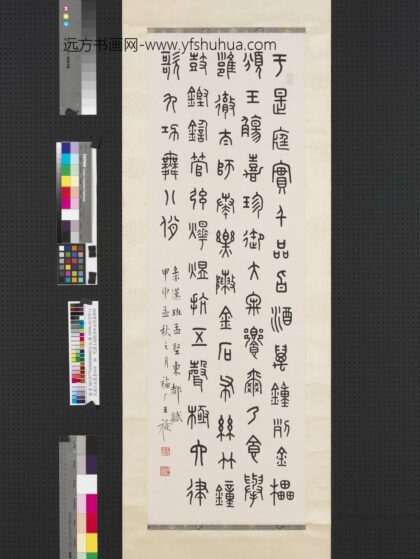 远方书画网-www.yfshuhua.com
于是庭實千品旨酒萬鐘列金罍
頒玉觴嘉珍御大牢饗爾乃食舉
雝徹太師奏樂陳金石布絲竹鐘
鼓鏗鍧管弦燁煜抗五聲極六律
歌九功舞八佾
彔漢班孟堅東都賦
甲申孟秋之月福厂王禔